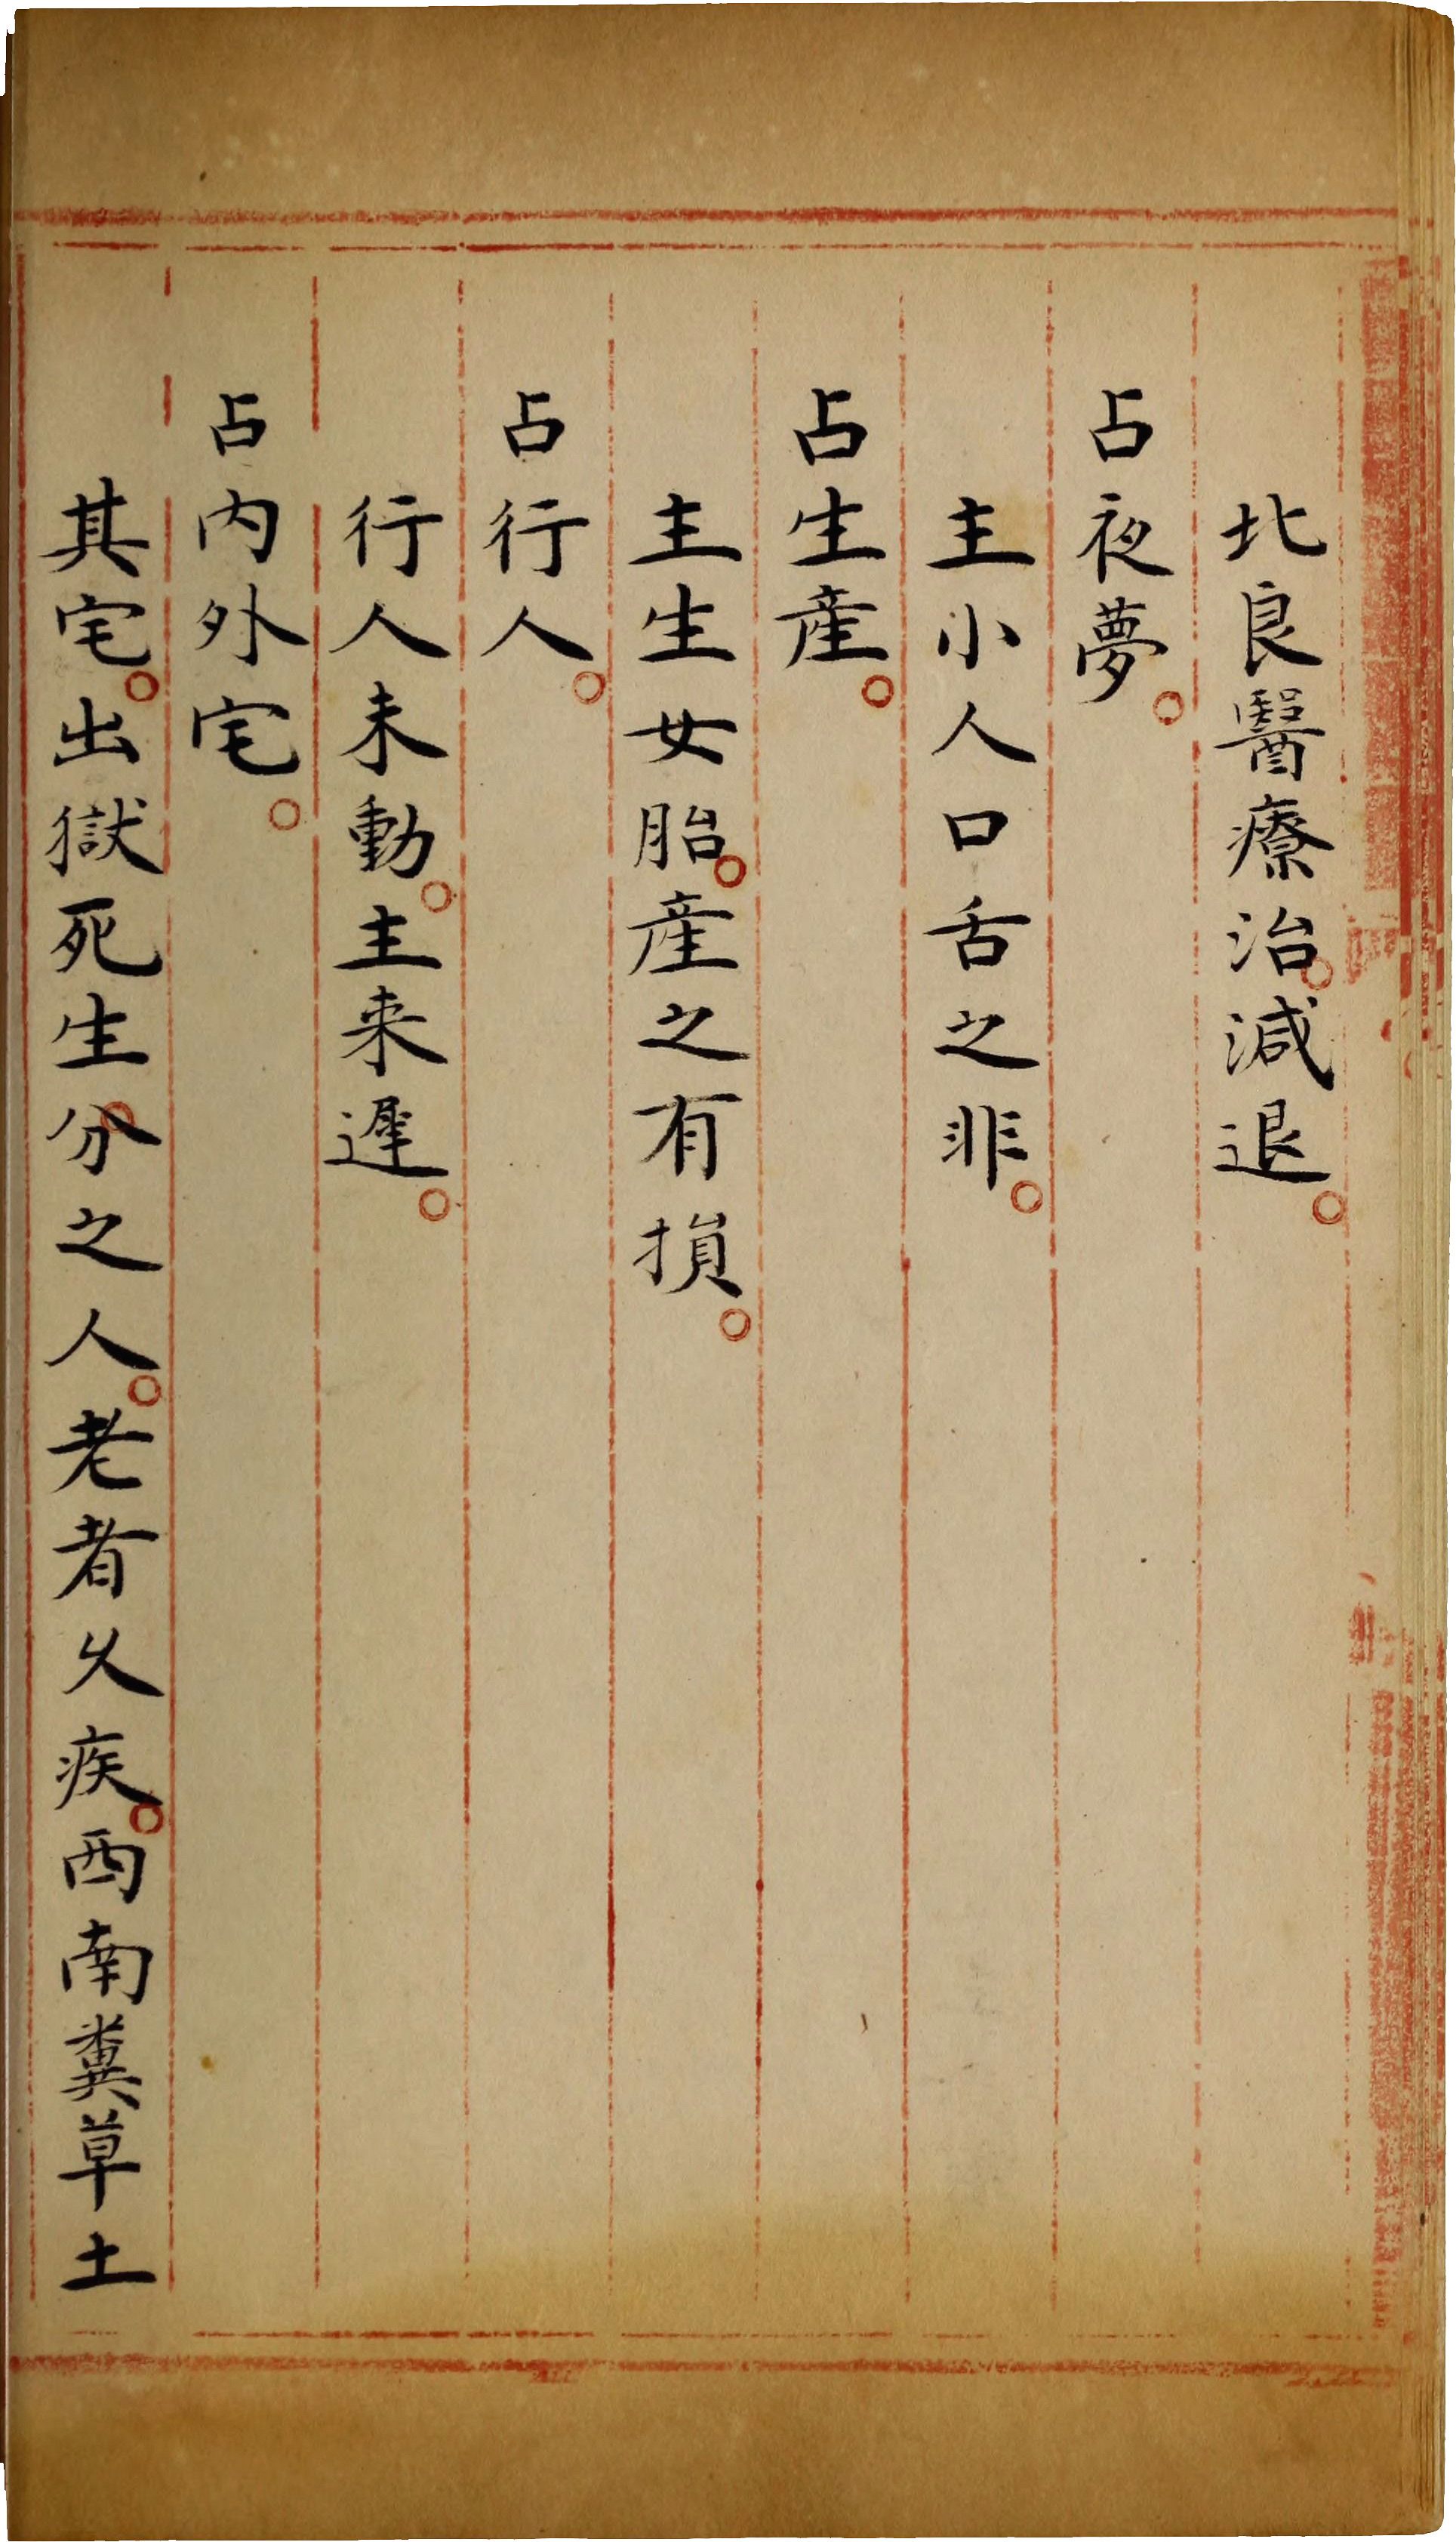 北良醫療治。減退。
占夜夢。
主小人口舌之非。
占生産。
主生女胎。産之有損。
占行人。
行人未動。主来遲。
占内外宅。
其宅。出獄死生。分之人。老者火疾。西南糞草土